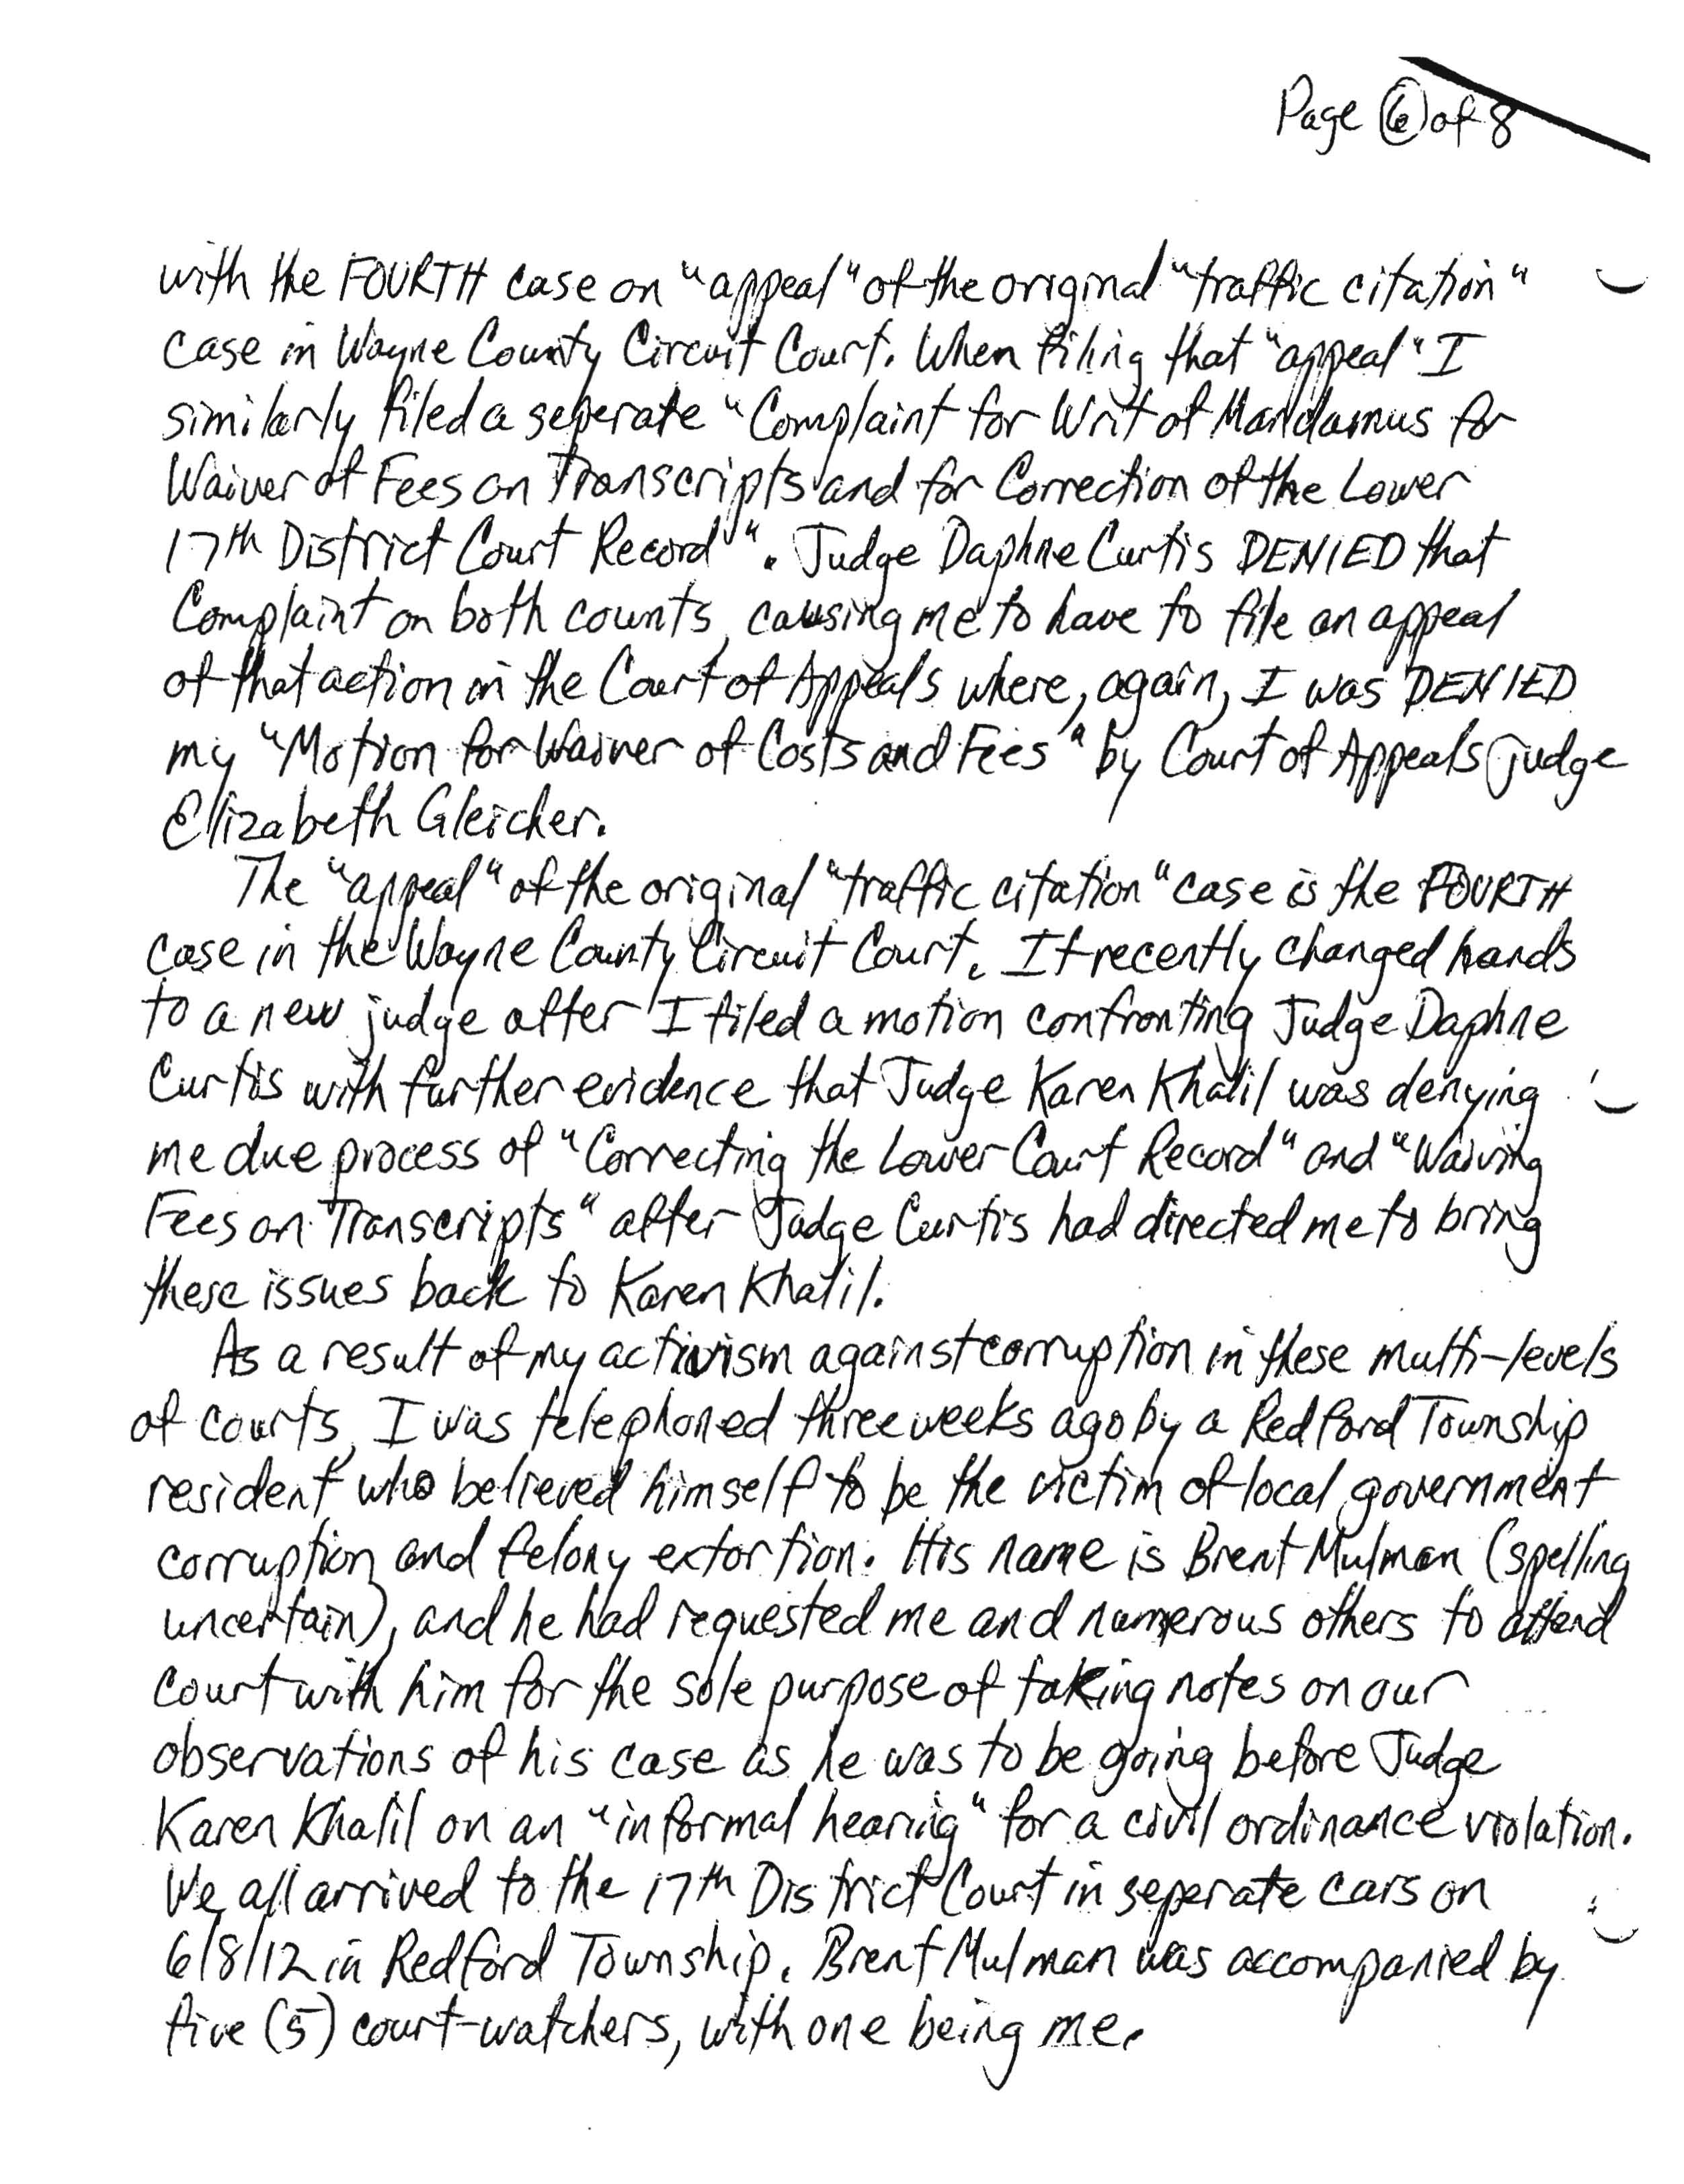 Page 6 of 8
with the FOURTH case on "appeal" of the original "traffic citation"
case in Wayne County Circuit Court. When filing that "appeal" I
similarly filed a seperate "Complaint for Writ of Mandamus for
Waiver of Fees on Transcripts and for Correction of the Lower
17th District Court Record". Judge Daphne Curtis DENIED that
Complaint on both counts, causing me to have to file an appeal
of that action in the Court of Appeals where, again, I was DENIED
my "Motion for Waiver of Costs and Fees" by Court of Appeals judge
Elizabeth Gleicher.
The "appeal" of the original "traffic citation" case is the FOURTH
case in the Wayne County Circuit Court. It recently changed hands
to a new judge after I filed a motion confronting Judge Daphne
Curtis with further evidence that Judge Karen Khalil was denying
me due process of "Correcting the Lower Court Record" and "Waiving
Fees on Transcripts" after Judge Curtis had directed me to bring
these issues back to Karen Khalil.
As a result of my activism against corruption in these multi-levels
of courts, I was telephoned three weeks ago by a Redford Township
resident who believed himself to be the victim of local government
corruption and felony extortion. His name is Brent Mulman (spelling
uncertain), and he had requested me and numerous others to attend
court with him for the sole purpose of taking notes on our
observations of his case as he was to be going before Judge
Karen Khalil on an "informal hearing" for a civil ordinance violation.
We all arrived to the 17th District Court in seperate cars on
6/8/12 in Redford Township. Brent Mulman was accompanied by
five (5) court-watchers, with one being me.